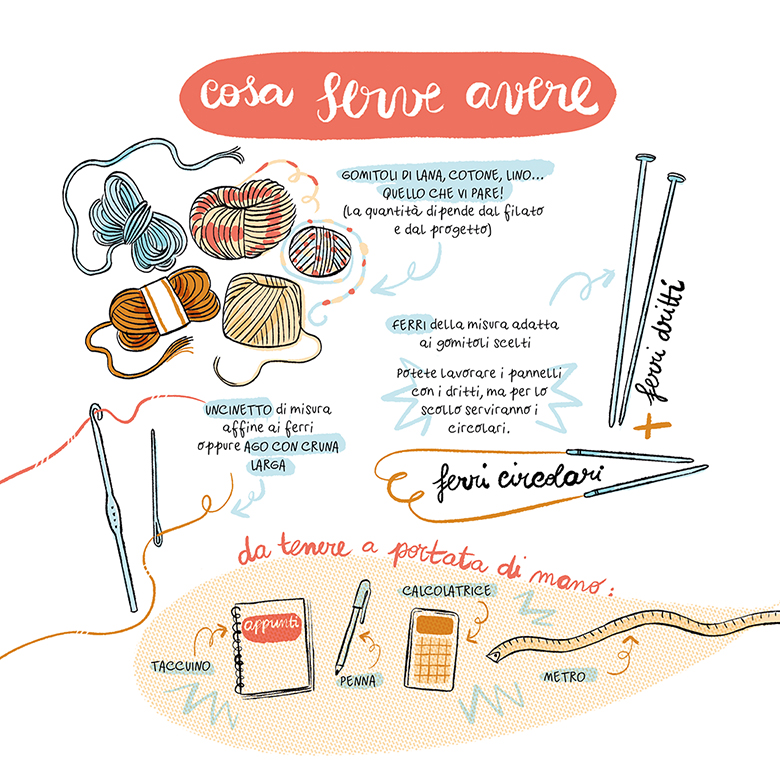 cosa serve avere
GOMITOLI DI LANA, COTONE, LINO...
QUELLO CHE VI PARE!
(La quantità dipende dal filato
e dal progetto)
FERRI della misura adatta
ai gomitoli scelti
Potete lavorare i pannelli
con i dritti, ma per lo
scollo serviranno i
circolari.
+ ferri dritti
UNCINETTO di misura
affine ai ferri
oppure AGO CON CRUNA
LARGA
ferri circolari
da tenere a portata di mano:
appunti
TACCUINO
PENNA
CALCOLATRICE
METRO